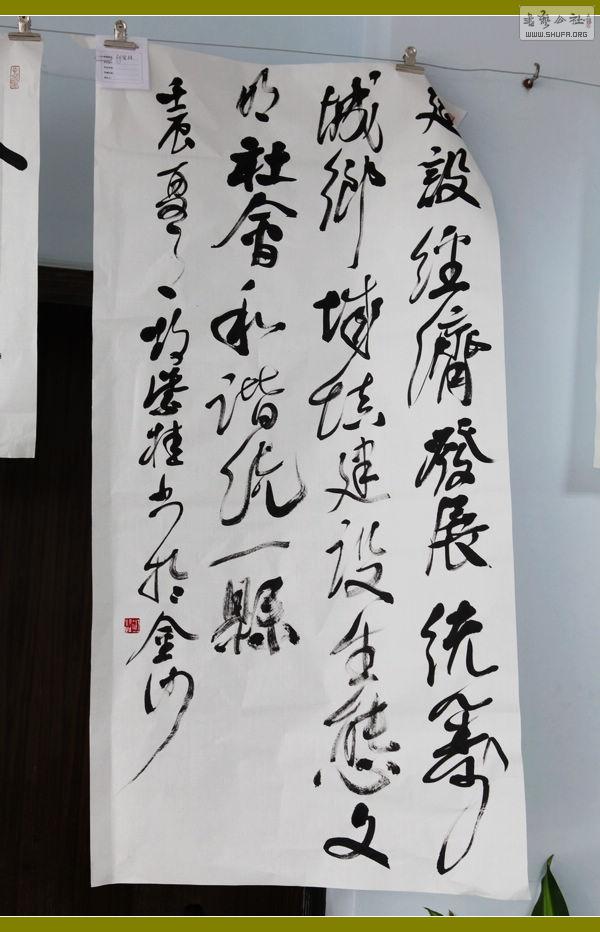 書藝公社
WWW.SHUFA.ORG
建設經濟發展統籌
城鄉城填建設生態文
明社會和諧統一縣
壬辰夏桂书於金沙